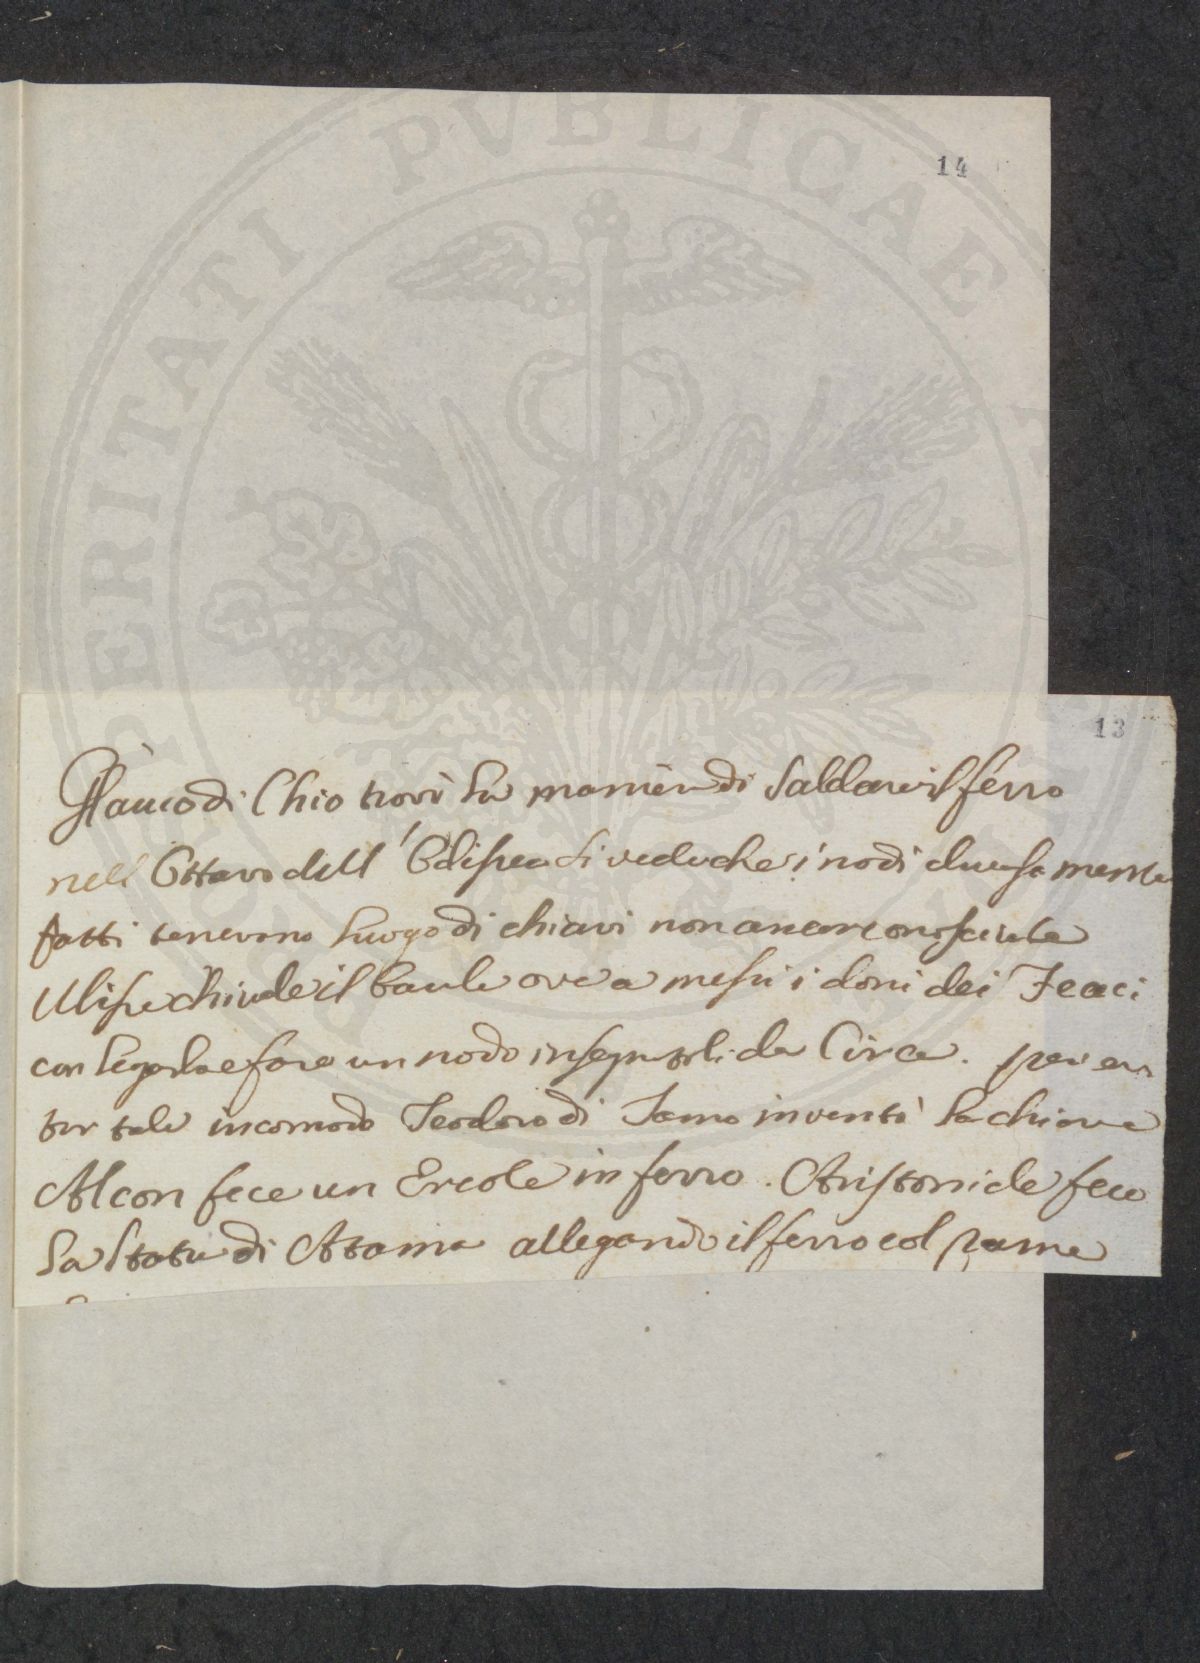 PROSPERITATI PUBLICAE
14
13
Glauco di Chio trovò la maniera di saldare il ferro
nell' Ottavo dell' Odissea si vede che i nodi diversamente
fatti tenevano luogo di chiavi non ancor conosciute
Ulisse chiude il baule ove a messi i doni dei Feaci
con legarlo e fare un nodo insegnatoli da Circe. per evi
tar tale incomodo Teodoro di Samo inventò la chiave
Alcon fece un Ercole in ferro. Aristonide fece
la Statu di Atama allegando il ferro col rame